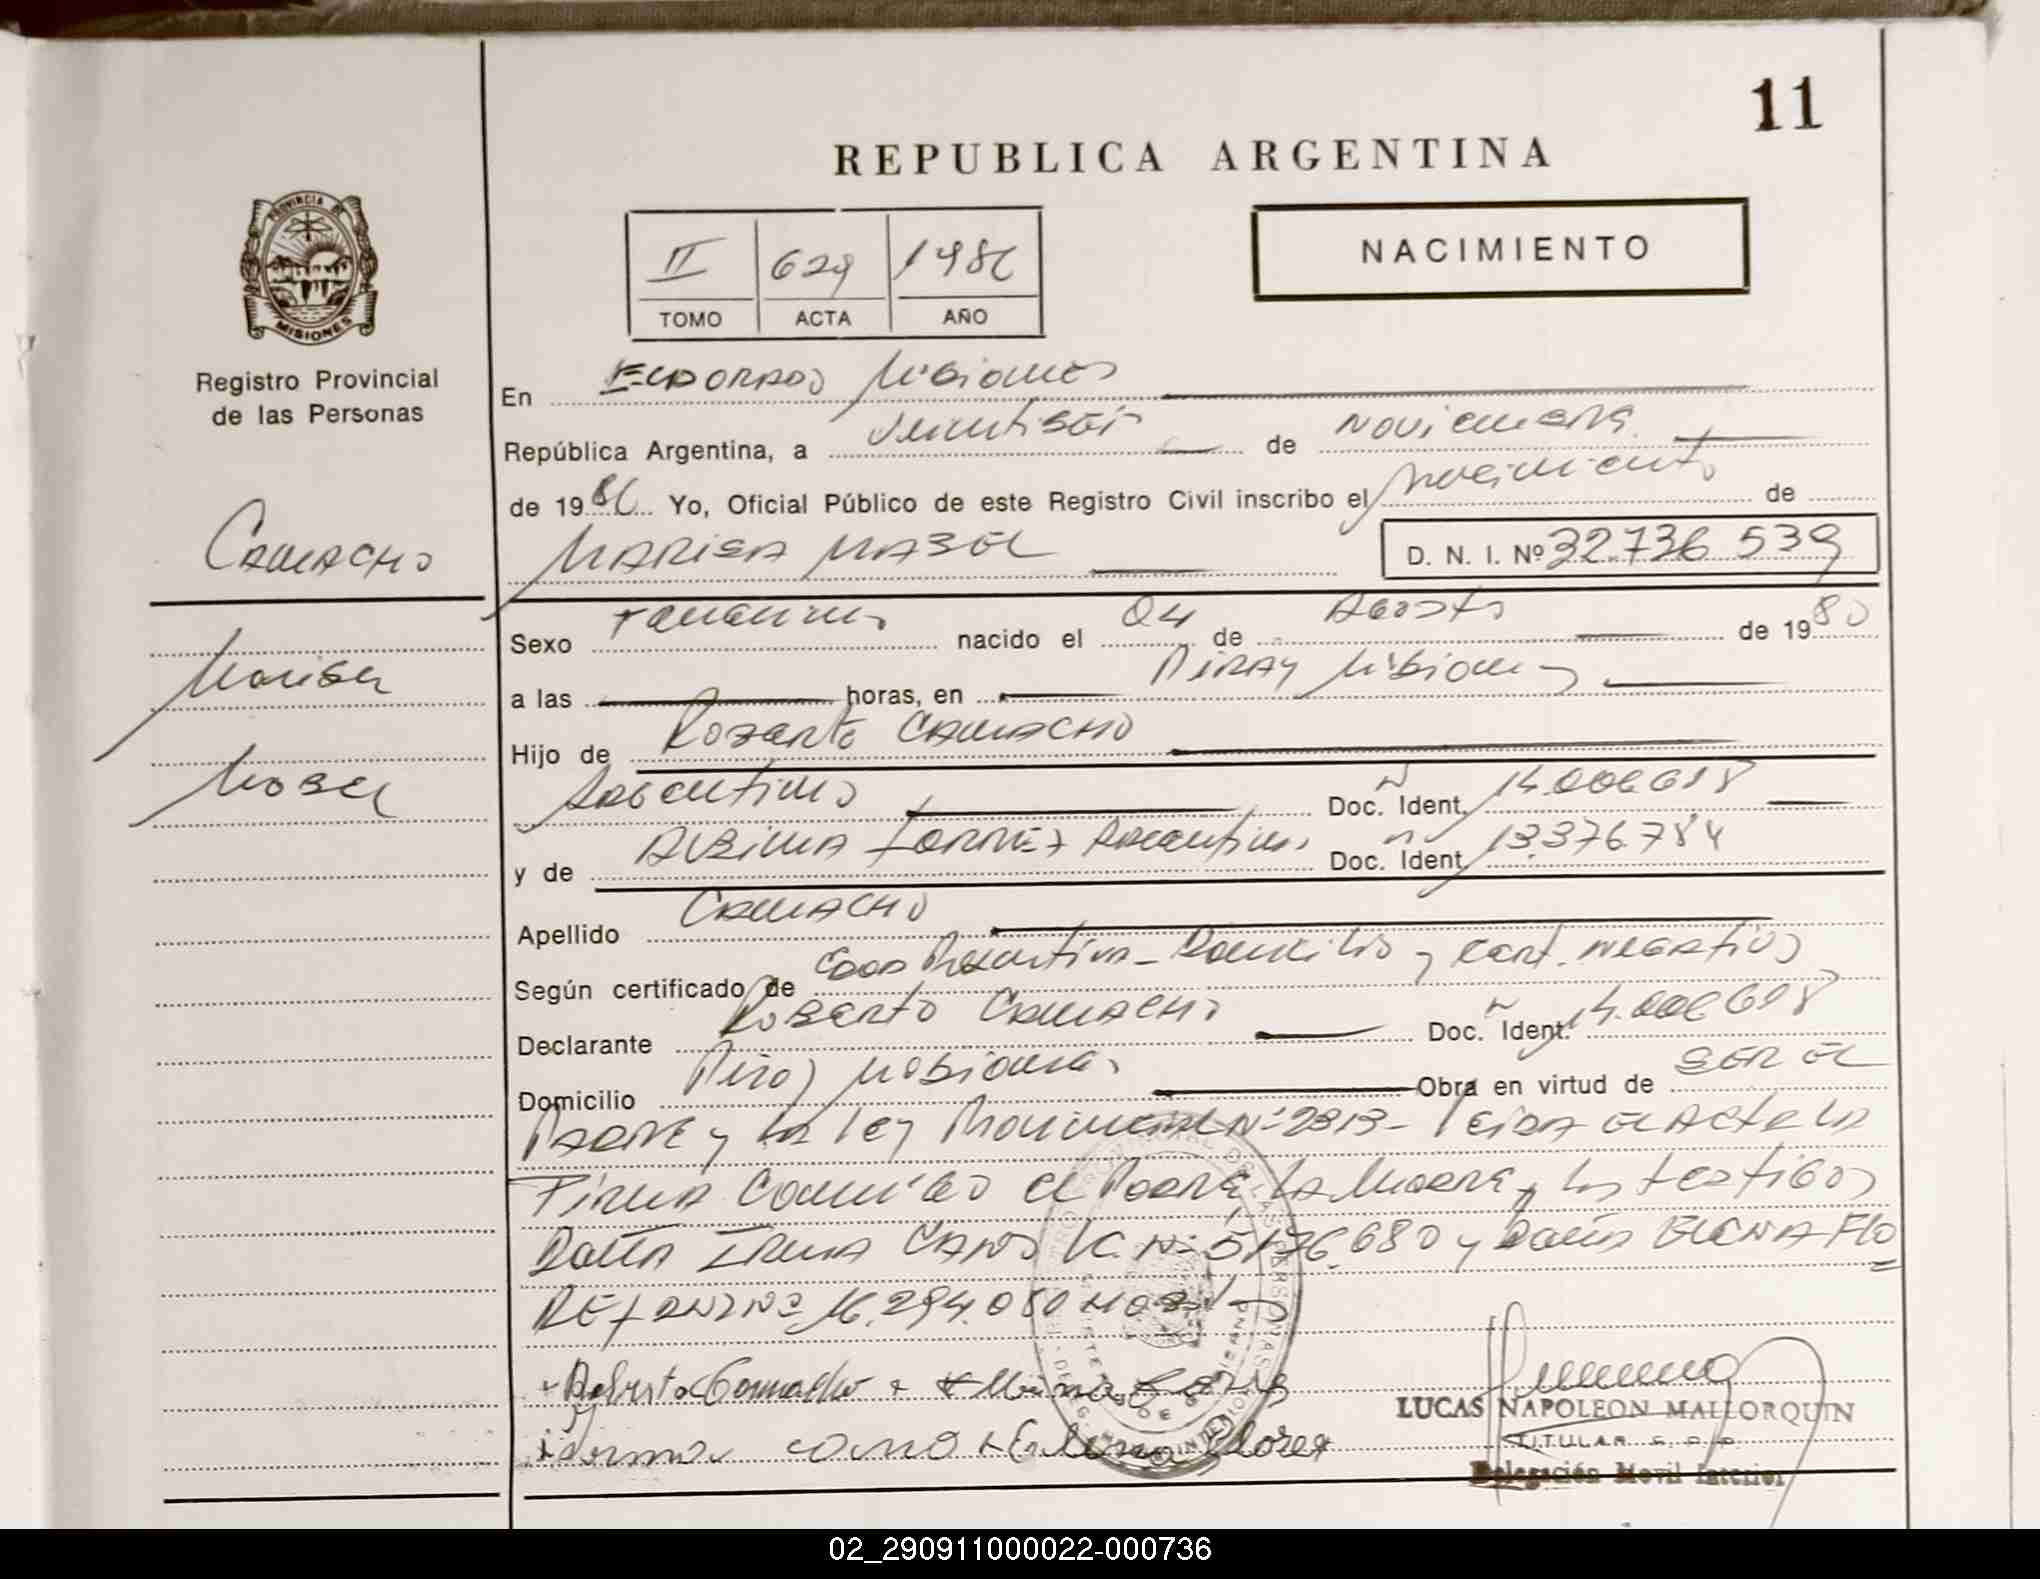 11
REPUBLICA ARGENTINA
PROVINCIA DE
MISIONES
Registro Provincial
de las Personas
II 629 1986
TOMO ACTA AÑO
NACIMIENTO
En ELDORADO Misiones
República Argentina, a veintiseis de NOVIEMBRE
de 1986 Yo, Oficial Público de este Registro Civil inscribo el nacimiento de
CAMACHO
MARISA MABEL D. N. I. Nº 32.736.539
Marisa
Mabel
Sexo Femenino nacido el 04 de Agosto de 1980
a las horas, en PIRAY Misiones
Hijo de Roberto CAMACHO
Argentino Doc. Ident. 14.006.698
y de ALBINA TORRES Argentina Doc. Ident. 13.376.784
Apellido CAMACHO
Según certificado de Domicilio y cert. NEGATIVO
Declarante Roberto CAMACHO Doc. Ident. 14.006.698
Domicilio Piray Misiones Obra en virtud de SER EL
PADRE y la ley Provincial Nº 2313- Leida EL ACTA LA
FIRMA conmigo el Padre, LA MADRE y los testigos
DOÑA IRMA CANO L.C. Nº 5.176.680 y Doña ELENA FLO
RES DNI Nº 16.294.080
Roberto Camacho
Irma Cano Elena Flores
LUCAS NAPOLEON MALLORQUIN
TITULAR
Delegación Movil Interior
02_290911000022-000736